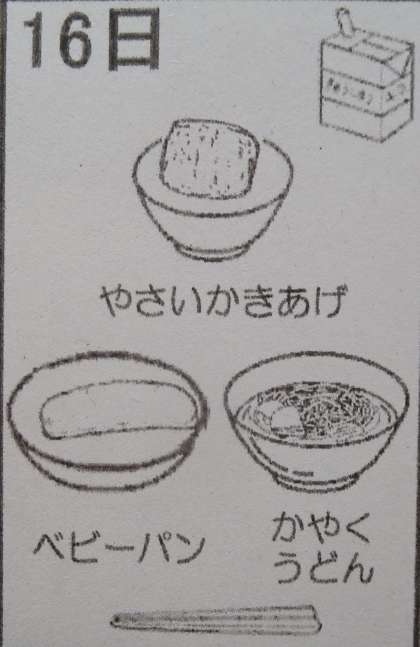 16日
やさいかきあげ
ベビーパン
かやく
うどん